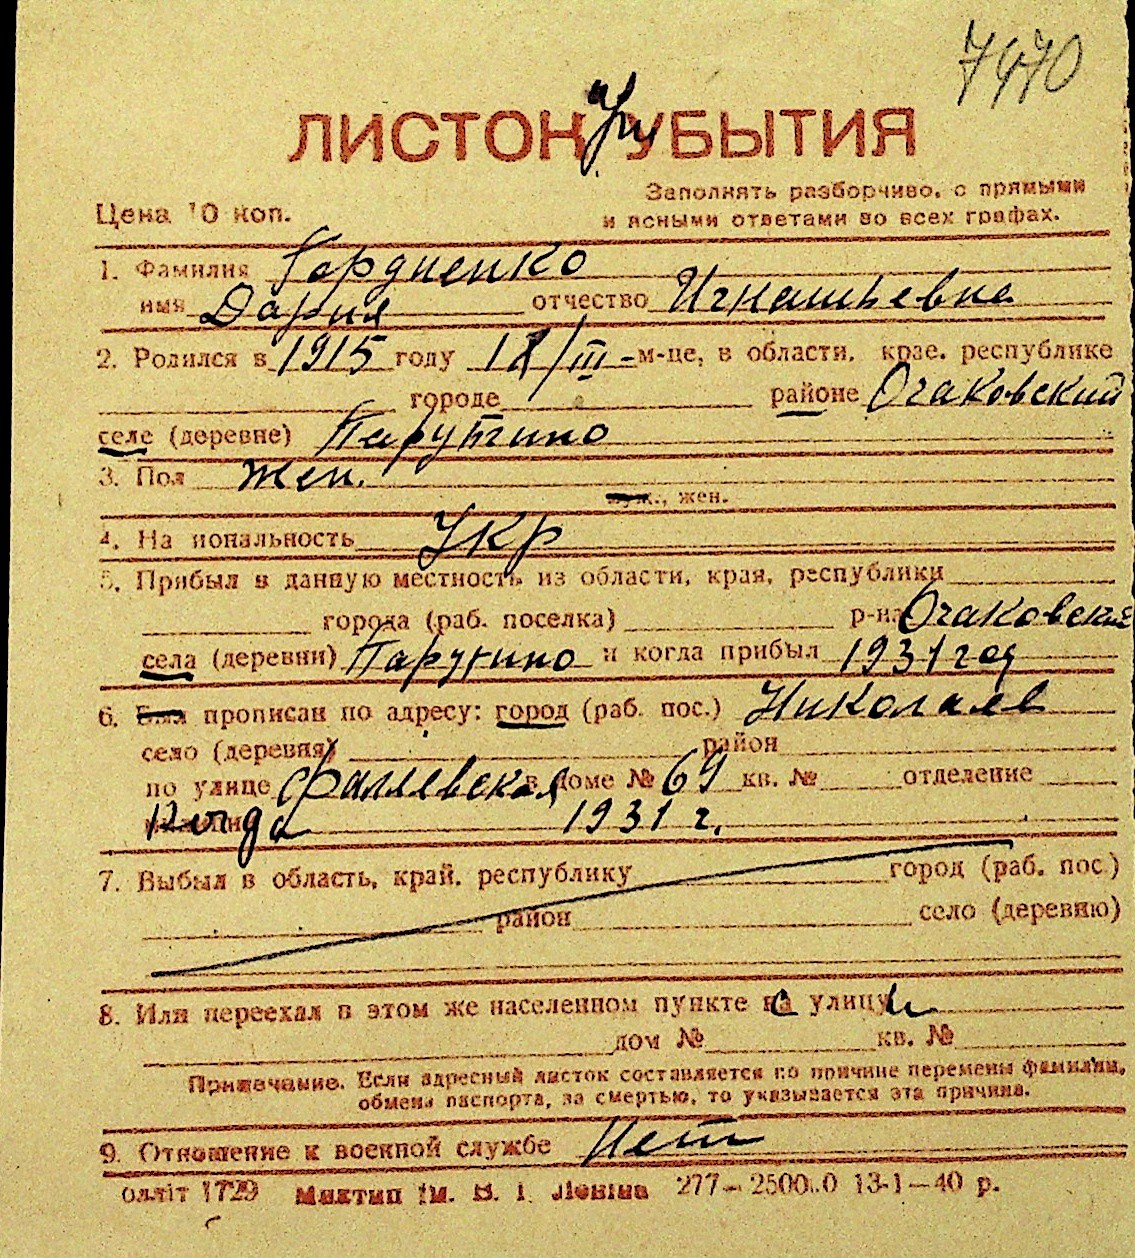 7970
ЛИСТОК УБЫТИЯ
При
Заполнять разборчиво, с прямыми
Цена 10 коп.
и ясными ответами во всех графах.
1. Фамилия Гордиенко
имя Дария отчество Игнатьевна
2. Родился в 1915 году 18/III-м-це, в области, крае, республике
городе районе Очаковский
селе (деревне) Парутино
3. Пол жен.
муж., жен.
4. На иональность Укр
5. Прибыл в данную местность из области, края, республики
города (раб. поселка) р-на Очаковский
села (деревни) Парутино и когда прибыл 1931 год
6. Был прописан по адресу: город (раб. пос.) Николаев
село (деревня) район
по улице Фалеевская в доме № 69 кв. № отделение
Когда 1931 г.
7. Выбыл в область, край, республику город (раб. пос.)
район село (деревню)
8. Или переехал в этом же населенном пункте с улицы
дом № кв. №
Примечание. Если адресный листок составляется по причине перемены фамилии,
обмена паспорта, за смертью, то указывается эта причина.
9. Отношение к военной службе Нет
олліт 1729 Миктип ім. В. І. Леніна 277—2500.0 13-1—40 р.